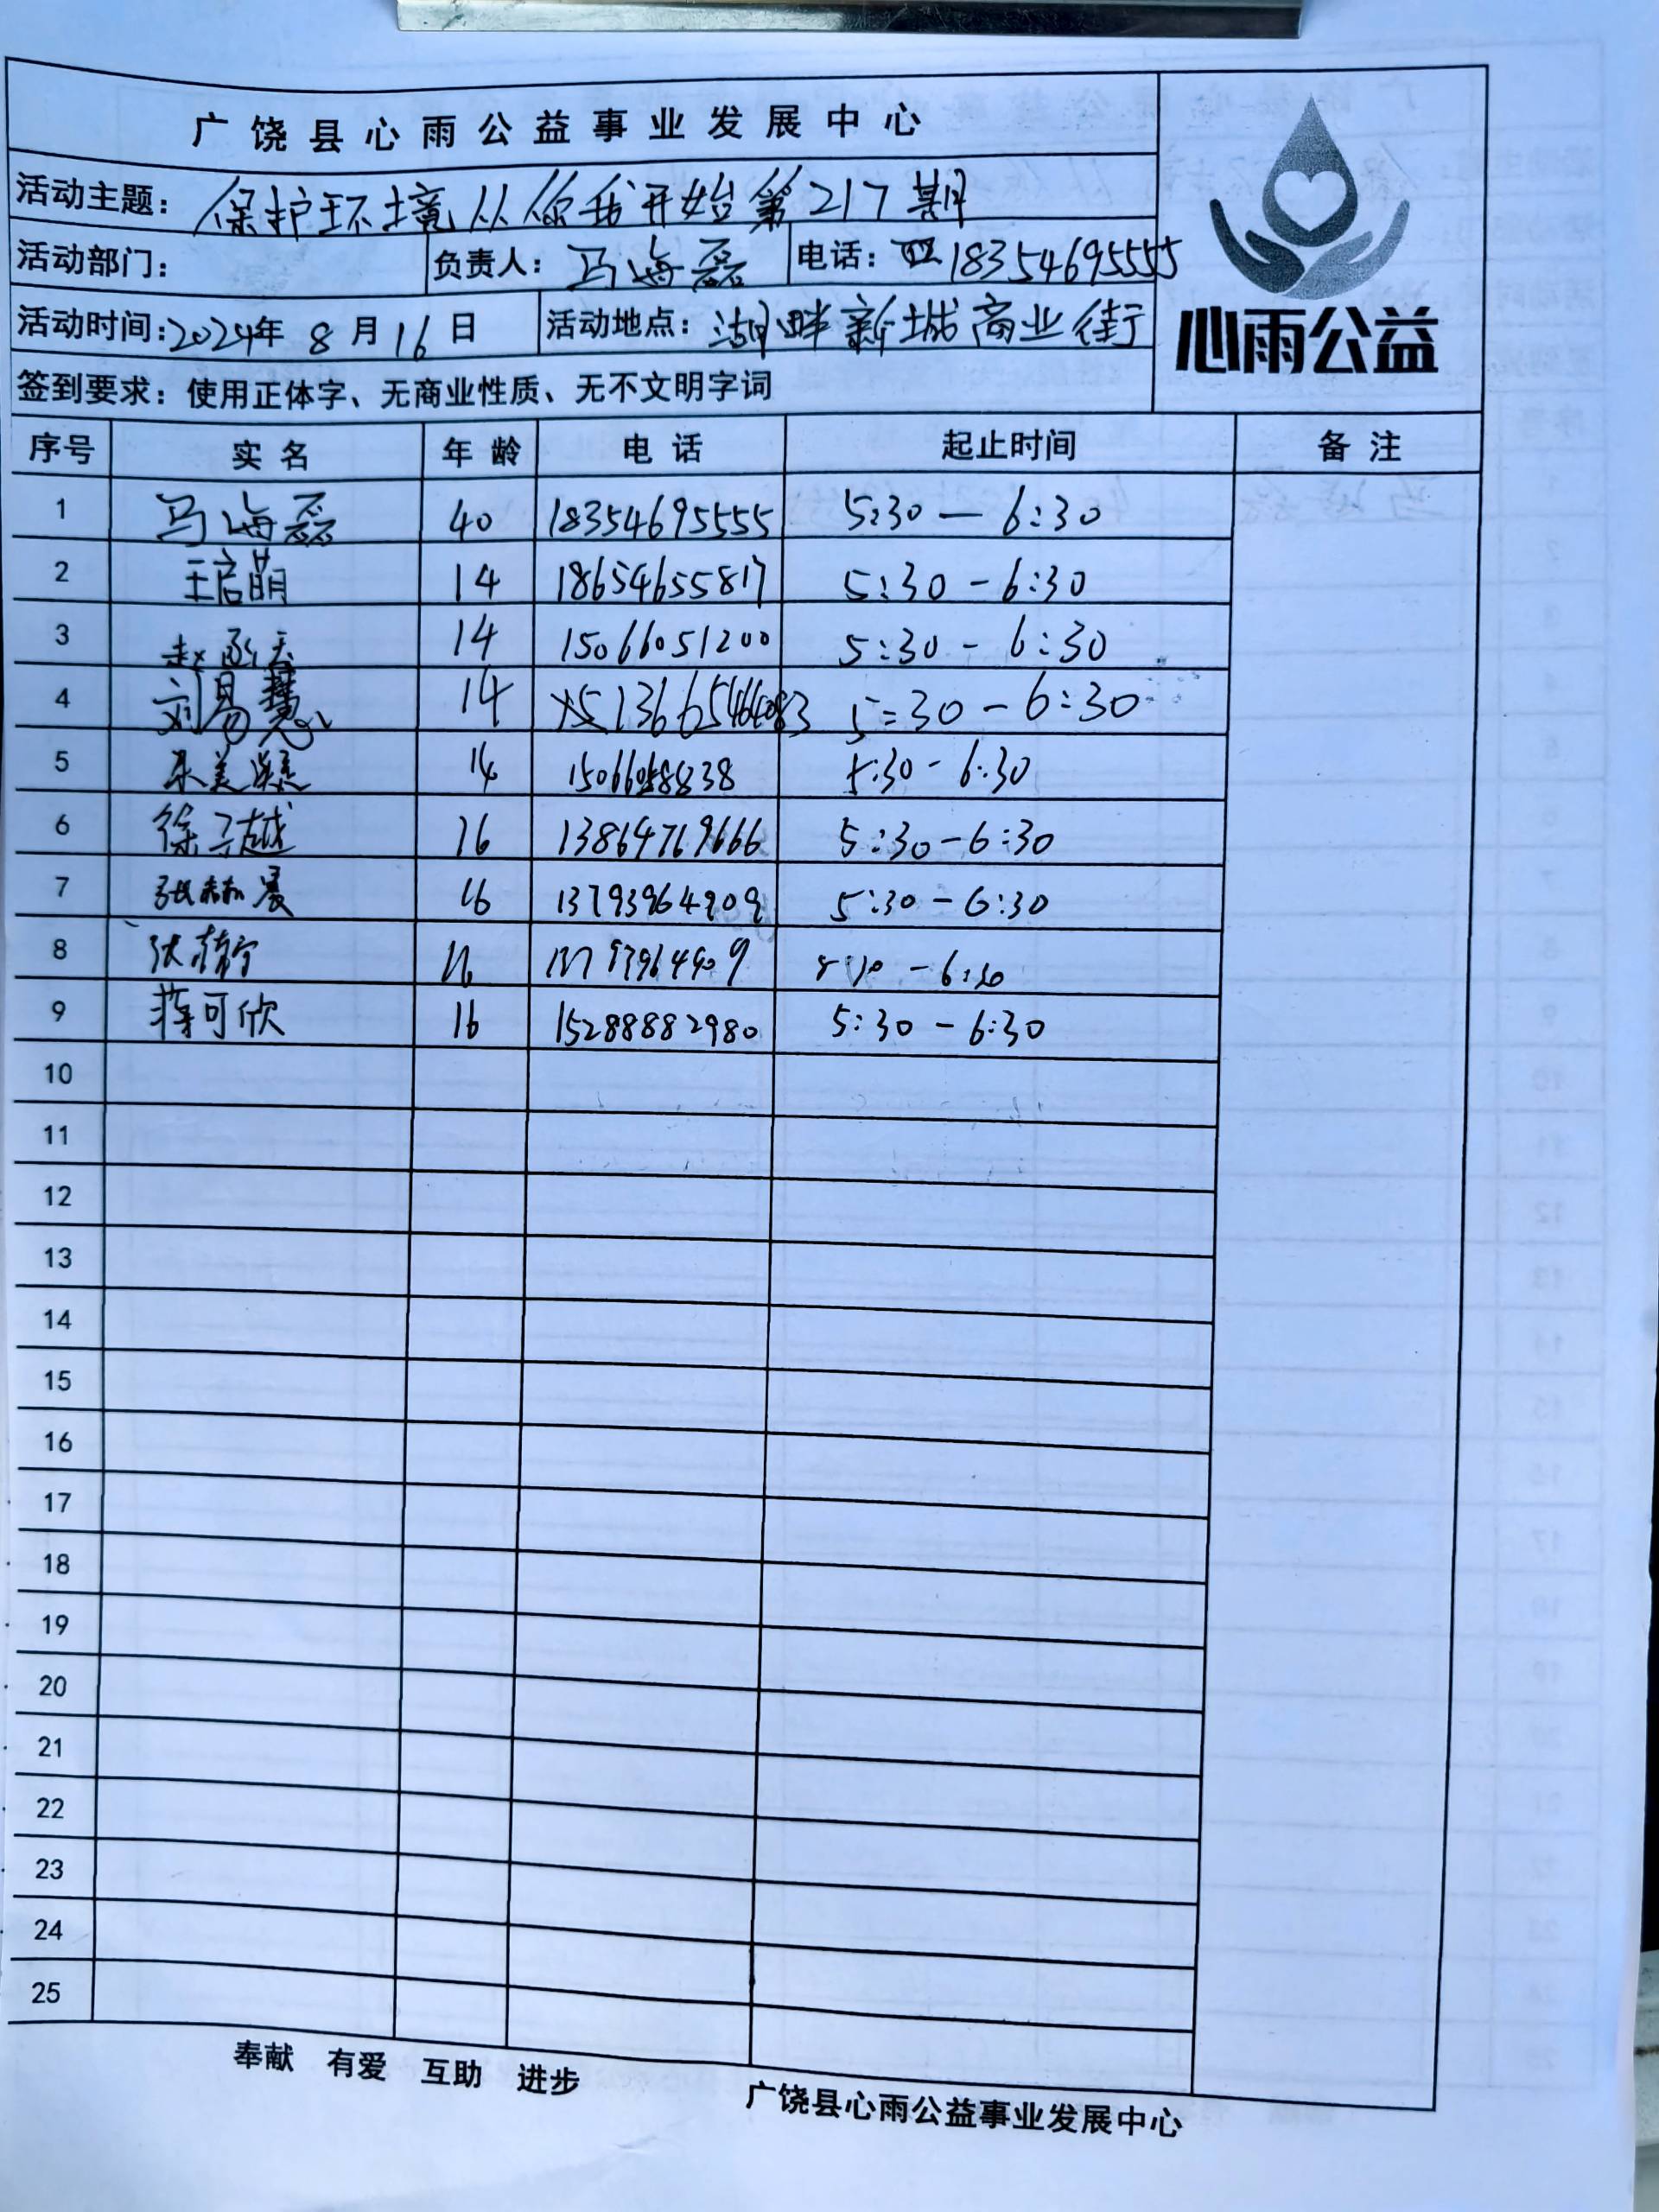 广饶县心雨公益事业发展中心
活动主题：保护环境从你我开始第217期
活动部门： 负责人：马海磊 电话：18354695555
活动时间：2024年8月16日 活动地点：湖畔新城商业街
心雨公益
签到要求：使用正体字、无商业性质、无不文明字词
序号 实名 年龄 电话 起止时间 备注
1 马海磊 40 18354695555 5:30—6:30
2 王启萌 14 18654655817 5:30-6:30
3 赵 14 15066051200 5:30-6:30
4 刘易慧 14 5:30-6:30
5 美 14 5:30-6:30
6 徐子越 16 13864769666 5:30-6:30
7 张赫晨 16 13793964909 5:30-6:30
8 张 16 -6:30
9 蒋可欣 16 15288882980 5:30-6:30
10
11
12
13
14
15
16
17
18
19
20
21
22
23
24
25
奉献 有爱 互助 进步
广饶县心雨公益事业发展中心